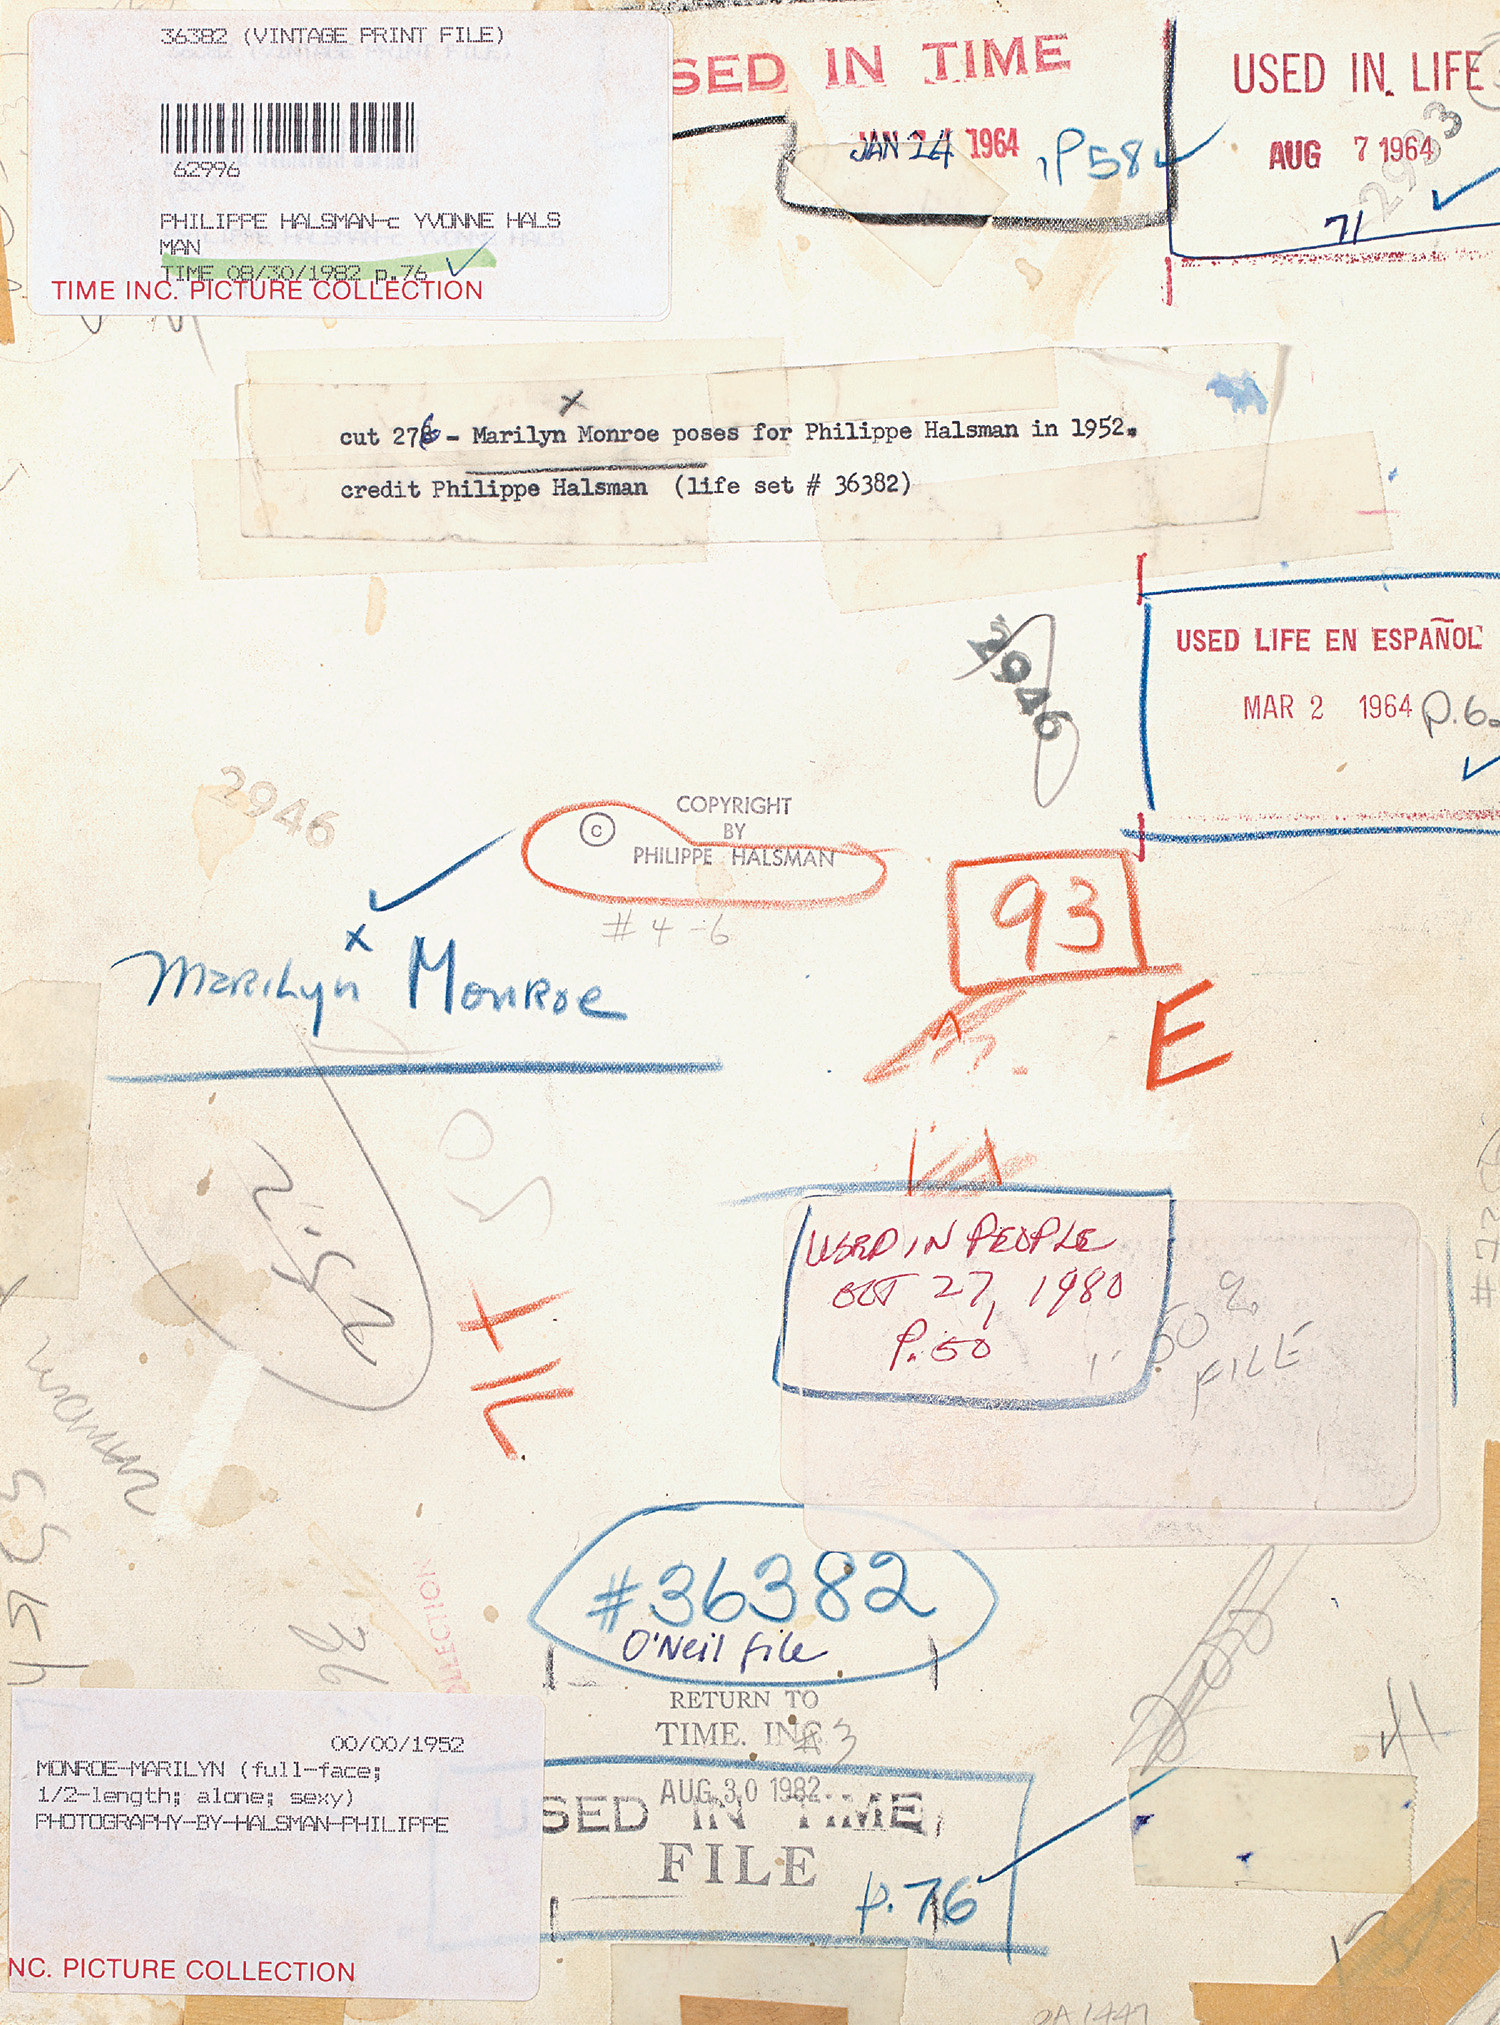 36382 (VINTAGE PRINT FILE)
62996
PHILIPPE HALSMAN-c YVONNE HALS
MAN
TIME 08/30/1982 p.76
TIME INC. PICTURE COLLECTION
SED IN TIME
JAN 24 1964
P 58
USED IN LIFE
AUG 7 1964
2933
71
cut 276 - Marilyn Monroe poses for Philippe Halsman in 1952.
credit Philippe Halsman (life set # 36382)
2946
USED LIFE EN ESPAÑOL
MAR 2 1964 p.6
2946
©
COPYRIGHT
BY
PHILIPPE HALSMAN
# 4-6
93
E
x
Marilyn Monroe
50
USED IN PEOPLE
OCT 27, 1980
P. 50
50%
FILE
#36382
O'Neil file
RETURN TO
TIME. INC
#3
AUG 30 1982
SED IN TIME
FILE
p. 76
00/00/1952
MONROE-MARILYN (full-face;
1/2-length; alone; sexy)
PHOTOGRAPHY-BY-HALSMAN-PHILIPPE
NC. PICTURE COLLECTION